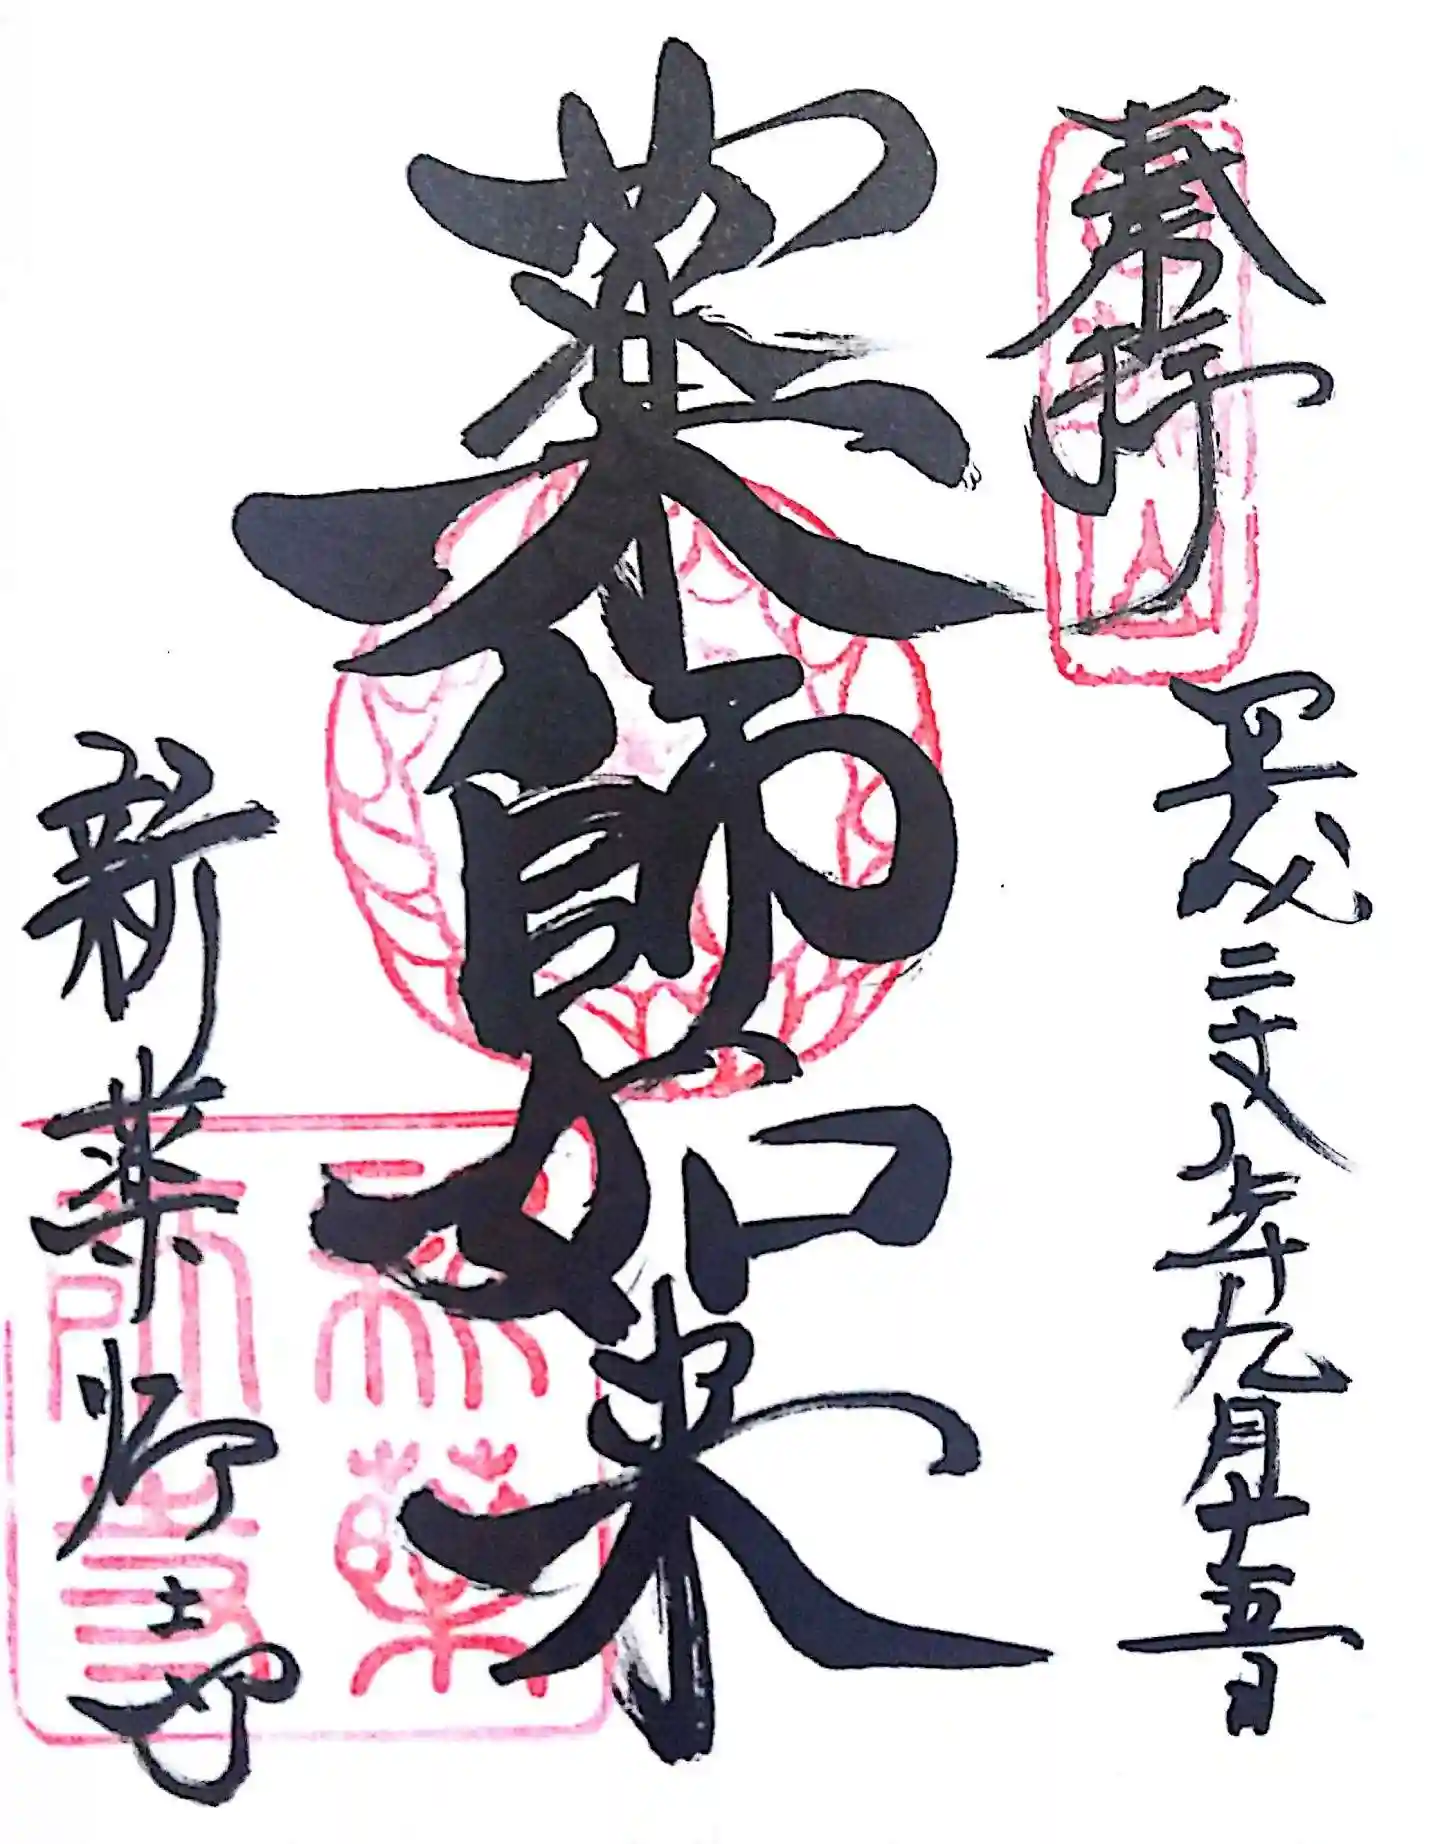 奉拝
平成二十八年九月十五日
薬師如来
新薬師寺
新藥
師寺